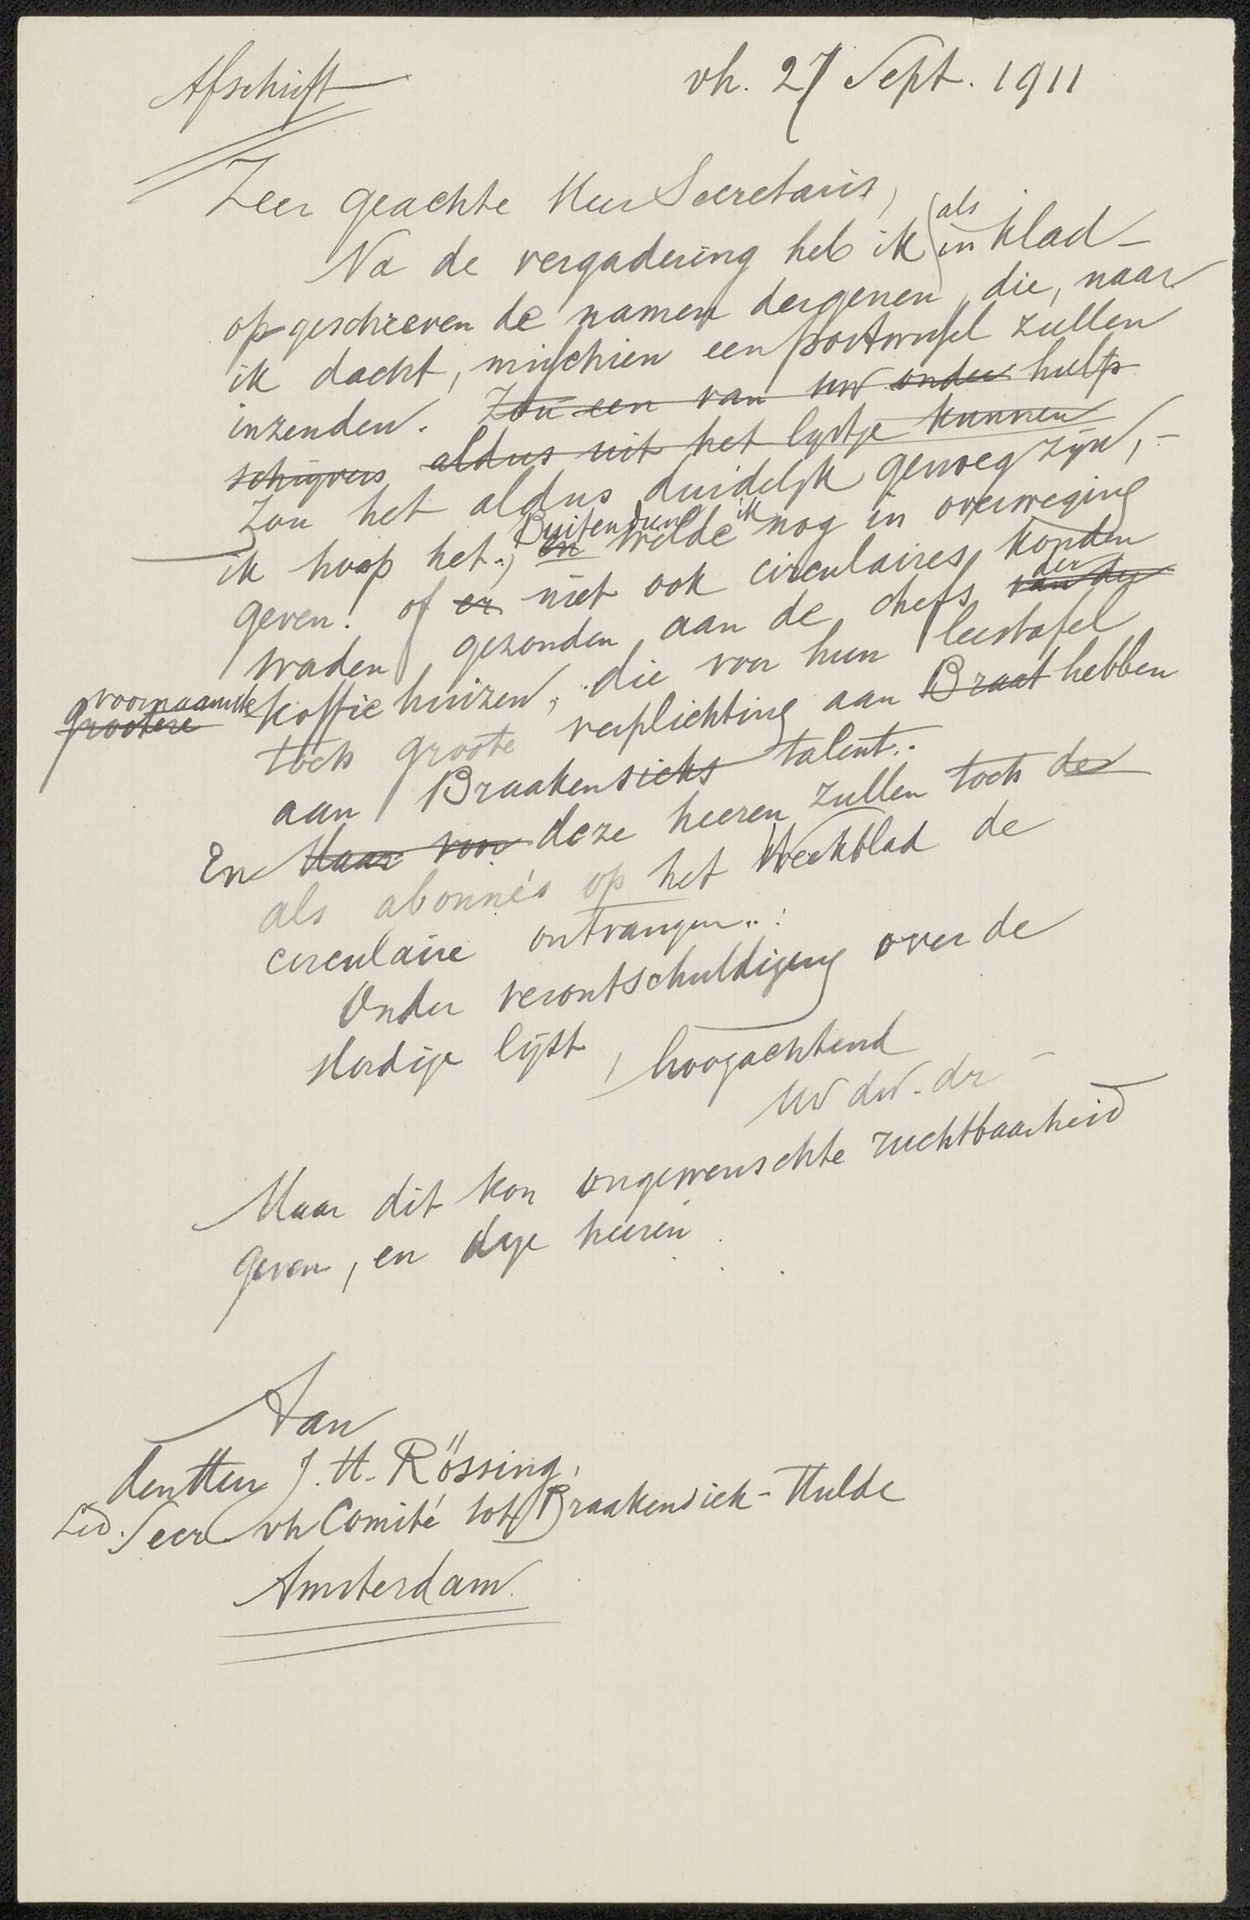 Afschrift
vh. 27 Sept. 1911
Zeer geachte Heer Secretaris,
Na de vergadering heb ik (als in klad –
opgeschreven de namen dergenen, die, naar
ik dacht, misschien een portretje zullen
inzenden. Zou een van uw onder hulp
schrijvers aldus uit het lystje kunnen
Zou het aldus duidelyk genoeg zyn, –
ik hoop het.; en Buitendien wilde ik nog in overweging
geven! of er niet ook circulaires konden
worden gezonden aan de chefs van dy der
grootere voornaamste koffiehuizen, die voor hun leestafel
toch groote verplichting aan Braat hebben
aan Braakensieks talent.
En Maar voor deze heeren zullen toch de
als abonné's op het Weekblad de
circulaire ontvangen..
Onder verontschuldiging over de
slordige lijst, hoogachtend
Uw dw. dr
Maar dit kon ongewenschte ruchtbaarheid
geven, en dye heeren
Aan
den Heer J. H. Rössing,
Lid. Secr vh Comité tot Braakensiek-Hulde
Amsterdam.